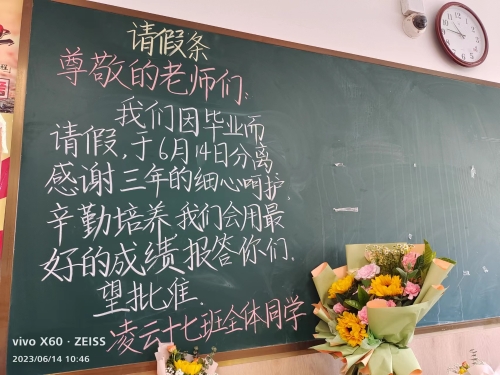 请假条
尊敬的老师们:
我们因毕业而
请假,于6月14日分离
感谢三年的细心呵护,
辛勤培养 我们会用最
好的成绩报答你们.
望批准.
凌云十七班全体同学
vivo X60 · ZEISS
2023/06/14 10:46